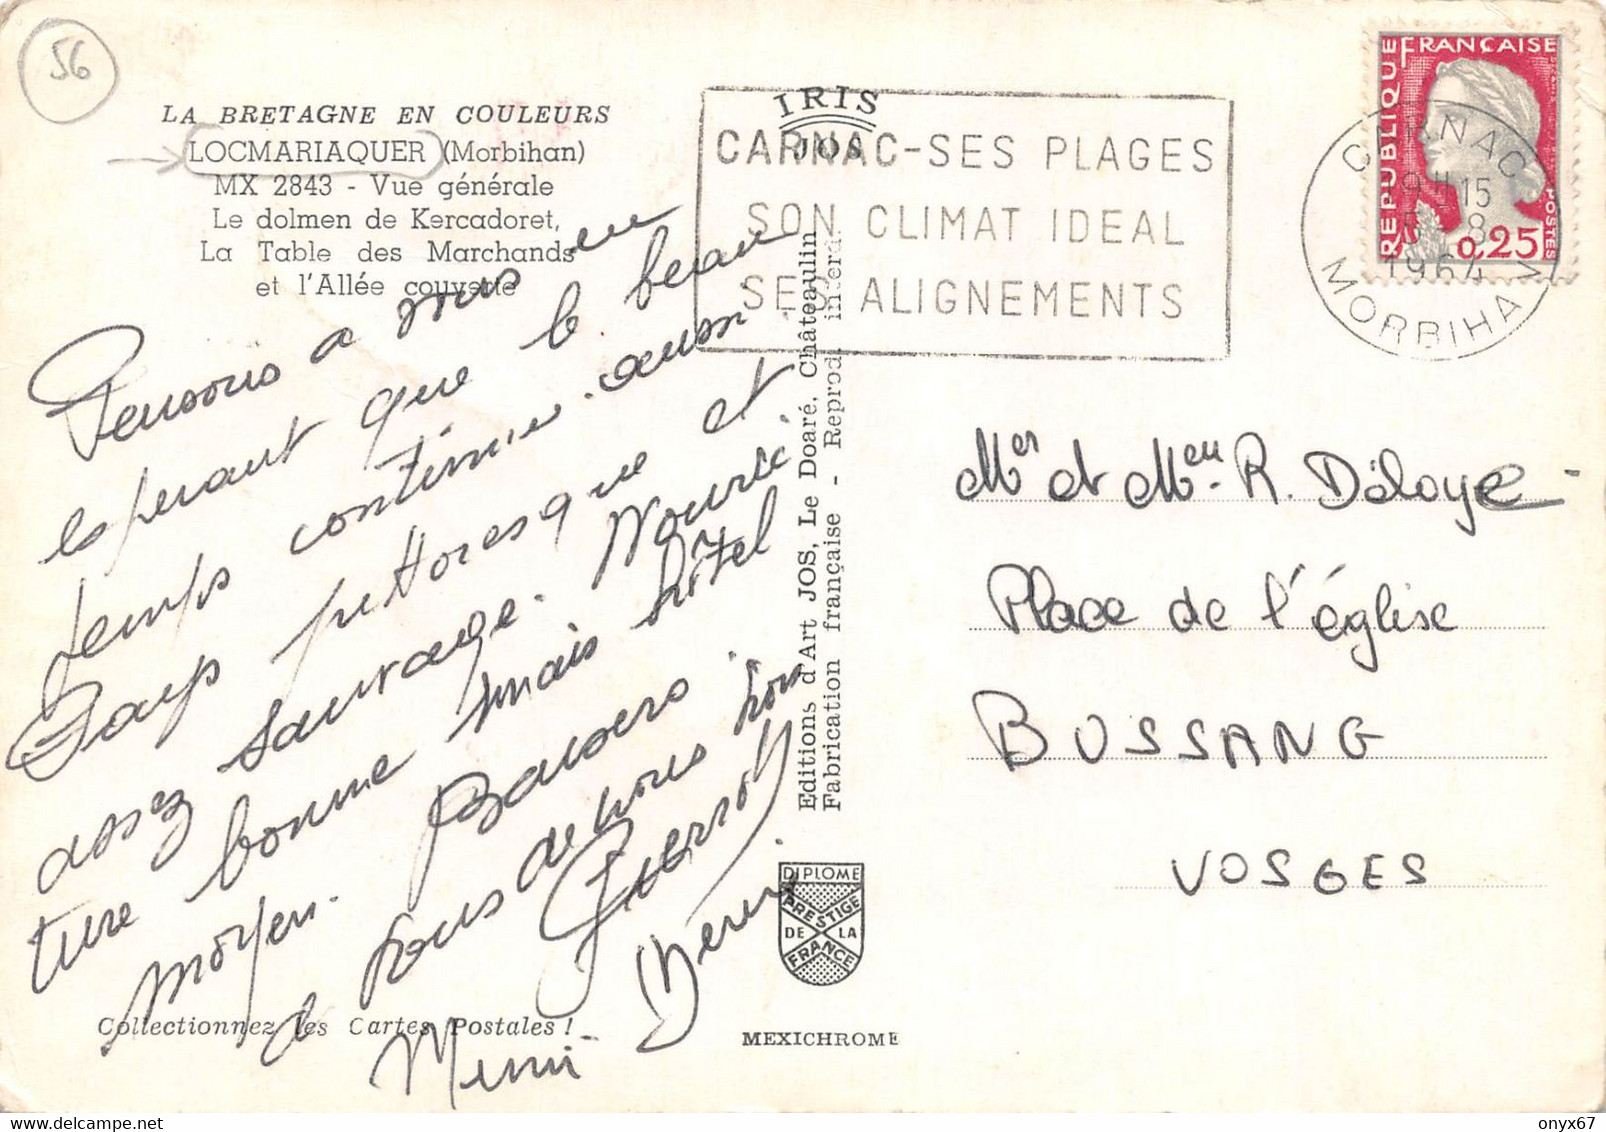 56
LA BRETAGNE EN COULEURS
LOCMARIAQUER (Morbihan)
MX 2843 - Vue générale
Le dolmen de Kercadoret,
La Table des Marchands
et l'Allée couverte
Pensons à vous en
espérant que le beau
temps continue aussi
Pays pittoresque et
assez sauvage. Nourri
ture bonne mais hôtel
moyen. Baisers
à tous de nous trois
Pierrot
Mimi
Collectionnez les Cartes Postales !
IRIS
JOS
CARNAC-SES PLAGES
SON CLIMAT IDEAL
SES ALIGNEMENTS
Editions d'Art JOS, Le Doaré, Châteaulin
Fabrication française - Reprod. interd.
DIPLOME
PRESTIGE
DE LA
FRANCE
MEXICHROME
REPUBLIQUE FRANÇAISE
POSTES
0,25
CARNAC
19H15
5-8
1964
MORBIHAN
Mer et Me R. Déloye
Place de l'église
BUSSANG
VOSGES
onyx67